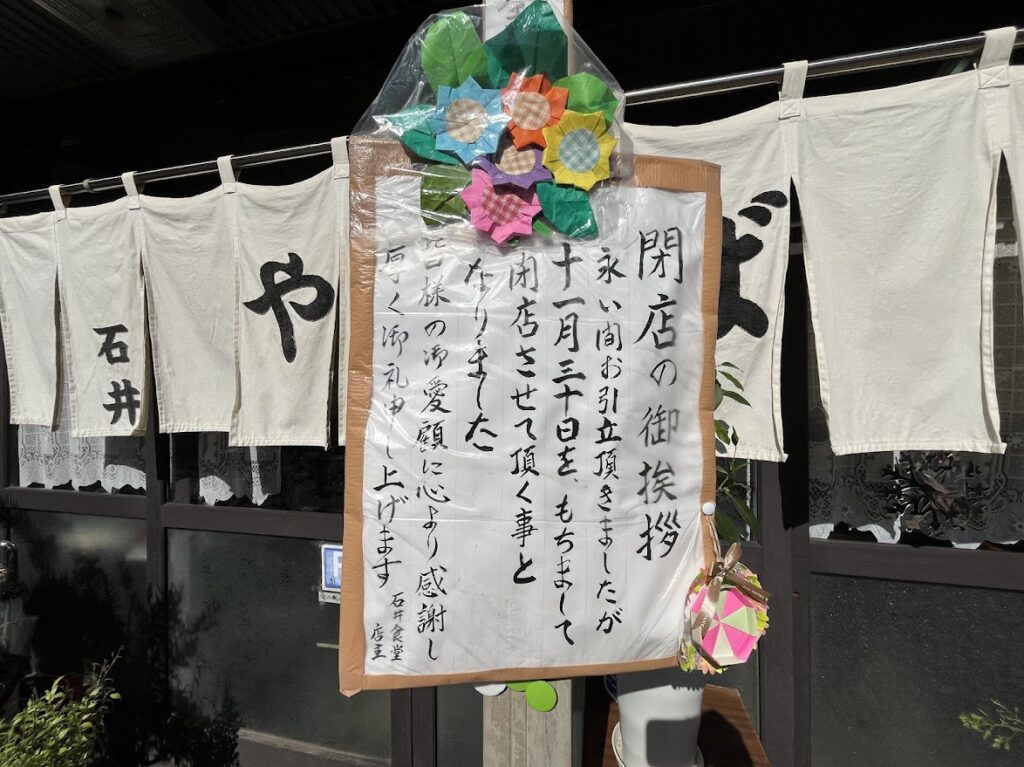 閉店の御挨拶
永い間お引立頂きましたが
十一月三十日を、もちまして
閉店させて頂く事と
なりました
皆様の御愛顧に心より感謝し
厚く御礼申し上げます
石井食堂
店主
ば
や
石井